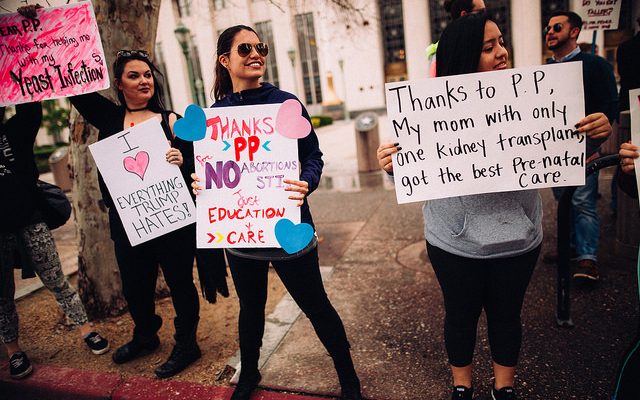 Dear P.P.
Thanks for helping me
with my
Yeast Infection
I
EVERYTHING
TRUMP
HATES!
THANKS
PP
for
NO ABORTIONS
STI
Just
EDUCATION
+
CARE
Thanks to P.P,
My mom with only
one kidney transplant,
got the best Pre-natal
Care.